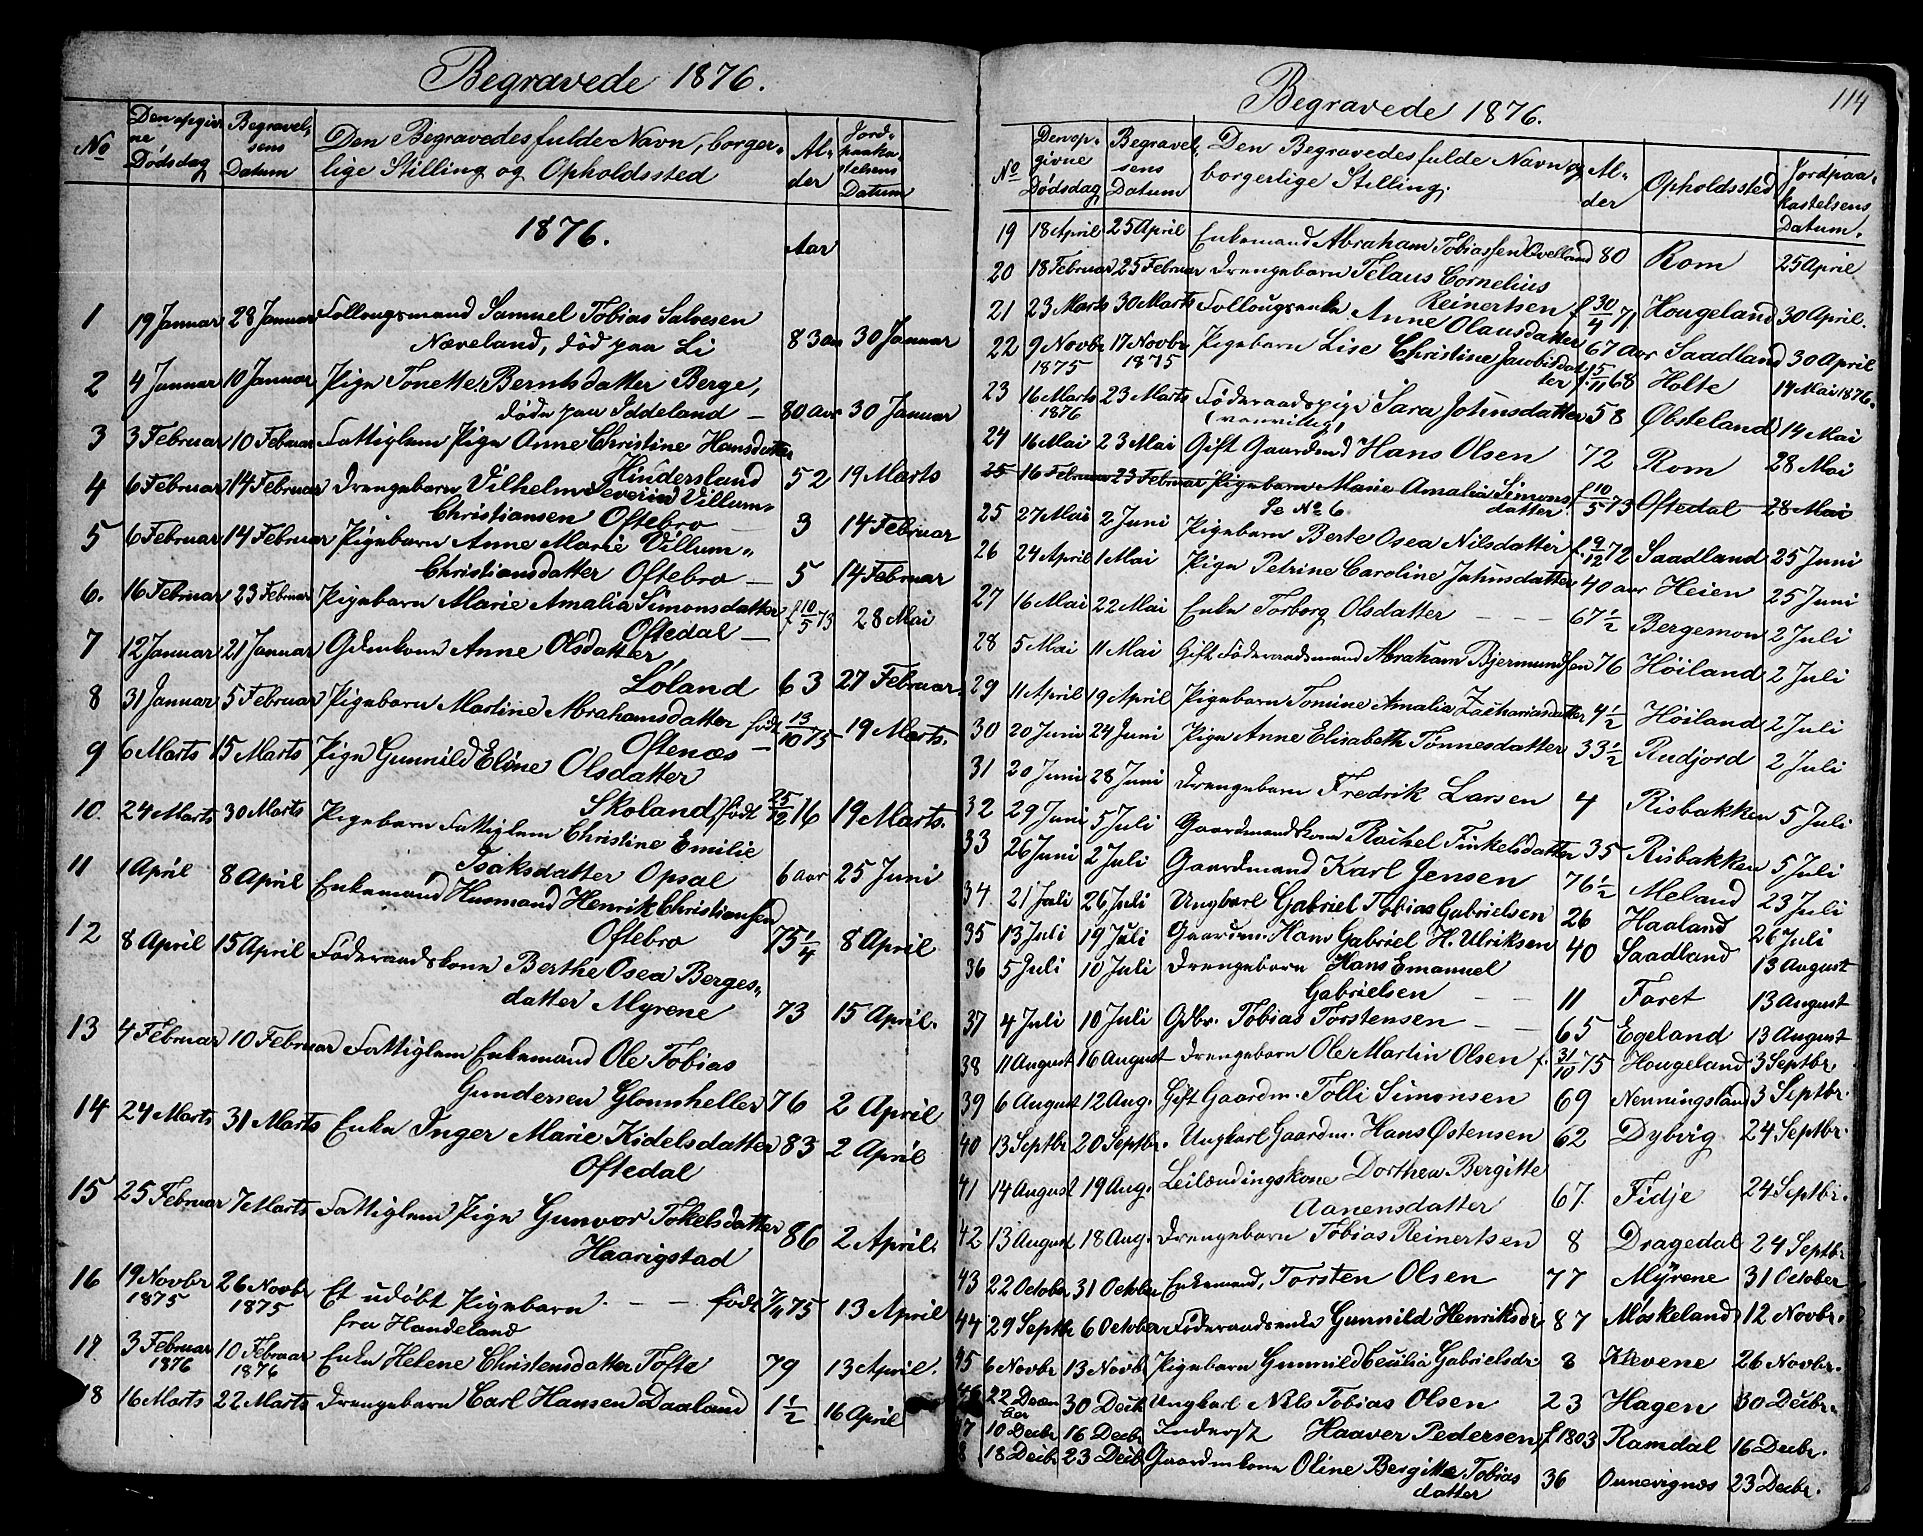 Begravede 1876.
No
Den opgiv-
ne
Dødsdag
Begravel-
sens
Datum
Den Begravedes fulde Navn, borger-
lige Stilling og Opholdssted
Al-
der
Jord-
paaka-
stelsens
Datum
1876.
Aar
1 19 Januar 28 Januar Follougsmand Samuel Tobias Salvesen
Næveland, død paa Li 83 aar 30 Januar
2 4 Januar 10 Januar Pige Tonette Berntsdatter Berge,
døde paa Iddeland — 80 aar 30 Januar
3 3 Februar 10 Februar Fattiglem Pige Anne Christine Hansdatter
Hindersland 52 19 Marts
4 6 Februar 14 Februar Drengebarn Vilhelm Severin Villum-
Christiansen Oftebro — 3 14 Februar
5 6 Februar 14 Februar Pigebarn Anne Marie Villum-
Christiansdatter Oftebro — 5 14 Februar
6. 16 Februar 23 Februar Pigebarn Marie Amalia Simonsdatter
Oftedal — f 10/5 73 28 Mai
7 12 Januar 21 Januar Gdmkone Anne Olsdatter
Löland 63 27 Februar
8 31 Januar 5 Februar Pigebarn Martine Abrahamsdatter
Oftenæs — født 13/10 75 19 Marts.
9 6 Marts 15 Marts Pige Gunnild Eline Olsdatter
Skoland født 25/12 16 19 Marts.
10. 24 Marts 30 Marts Pigebarn Fattiglem Christine Emilie
Isaksdatter Opsal 6 aar 25 Juni
11 1 April 8 April Enkemand Husmand Henrik Christiansen
Oftebro 75 1/4 8 April
12 8 April 15 April Føderaadskone Berthe Osea Berges-
datter Myrene 73 15 April.
13 4 Februar 10 Februar Fattiglem Enkemand Ole Tobias
Gundersen Glomheller 76 2 April
14 24 Marts 31 Marts Enke Inger Marie Kidelsdatter 83 2 April
Oftedal
15 25 Februar 7 Marts Fattiglem Pige Gunvor Tokelsdatter
Haarigstad 86 2 April.
16 19 Novbr 26 Novbr Et udøbt Pigebarn. — — født 7/11 75 13 April
1875 1875 fra Handeland
17. 3 Februar 10 Februar Enke Helene Christensdatter Tofte 79 13 April.
1876 1876
18 16 Marts 22 Marts Drengebarn Carl Hansen Daaland 1 1/2 16 April
114
Begravede 1876.
No
Den op-
givne
Dødsdag
Begravel-
sens
Datum
Den Begravedes fulde Navn og
borgerlige Stilling.
Al-
der
Opholdssted
Jordpaa-
kastelsens
Datum.
19 18 April 25 April Enkemand Abraham Tobiassen Qvelland 80 Rom 25 April
20 18 Februar 25 Februar Drengebarn Telaus Cornelius
Reinertsen f 30/4 71. Hougeland 30 April.
21 23 Marts 30 Marts Follougsenke Anne Olausdatter 67 aar Saadland 30 April
22 9 Novbr 17 Novbr Pigebarn Lise Christine Jacobsdat-
1875 1875 ter f. 15/11 68 Holte 14 Mai 1876.
23 16 Marts 23 Marts Føderaadspige Sara Johnsdatter 58 Øbsteland 14 Mai
1876 (vanvittig)
24 16 Mai 23 Mai Gift Gaardmd Hans Olsen 72 Rom 28 Mai
25 16 Februar 23 Februar Pigebarn Marie Amalia Simons f 10/5 73 Oftedal 28 Mai
Se No 6 datter
25 27 Mai 2 Juni Pigebarn Berte Osea Nilsdatter f. 9/12 72 Saadland 25 Juni
26 24 April 1 Mai Pige Petrine Caroline Jahnsdatter 40 aar Heien 25 Juni
27 16 Mai 22 Mai Enke Torborg Olsdatter — — — 67 1/2 Bergemon 2 Juli
28 5 Mai 11 Mai Gift Föderaadsmand Abraham Bjermundsen 76 Höiland 2 Juli
29 11 April 19 April Pigebarn Tomine Amalia Zachariasdatter 4 1/2 Höiland 2 Juli
30 20 Juni 24 Juni Pige Anne Elisabeth Tønnesdatter 33 1/2 Rudjord 2 Juli
31 20 Juni 28 Juni Drengebarn Fredrik Larsen 4 Risbakken 5 Juli
32 29 Juni 5 Juli Gaardmandskone Rachel Tinkelsdatter 35 Risbakken 5 Juli
33 26 Juni 2 Juli Gaardmand Karl Jensen 76 1/2 Meland 23 Juli
34. 21 Juli 26 Juli Ungkarl Gabriel Tobias Gabrielsen 26 Haaland 26 Juli
35 13 Juli 19 Juli Gaardm. Hans Gabriel H. Ulriksen 40 Saadland 13 August
36 5 Juli 10 Juli Drengebarn Hans Emanuel
Gabrielsen — — 11 Faret 13 August
37 4 Juli 10 Juli Gdbr. Tobias Torstensen — — 65 Egeland 13 August
38 11 August 16 August Drengebarn Ole Martin Olsen f. 31/10 75 Hougeland 3 Septbr
39 6 August 12 Aug. Gift Gaardm. Tölli Simonsen 69 Nenningsland 3 Septbr.
40 13 Septbr 20 Septbr. Ungkarl Gaardm. Hans Østensen 62 Dybvig 24 Septbr.
41 14 August 19 Aug. Leilændingskone Dorthea Bergitte
Aanensdatter 67. Fidje 24 Septbr.
42 13 August 18 Aug. Drengebarn Tobias Reinertsen 8 Dragedal 24 Septbr
43 22 October 31 October Enkemand, Torsten Olsen 77 Myrene 31 October
44 29 Septbr 6 October Føderaadsenke Gunnild Henriksdr 87 Möskeland 12 Novbr.
45 6 Novbr 13 Novbr Pigebarn Gunnild Cecilia Gabrielsdr. 8 Klevene 26 Novbr.
46 22 Decem 30 Decbr Ungkarl Nils Tobias Olsen 23 Hagen 30 Decbr.
ber
47 10 Decbr 16 Decbr Inderst Haaver Pedersen f 1803 Ramdal 16 Decbr.
8 18 Decbr 23 Decbr Gaardmkone Oline Bergitte Tobias
datter 36 Onnevignæs 23 Decbr.